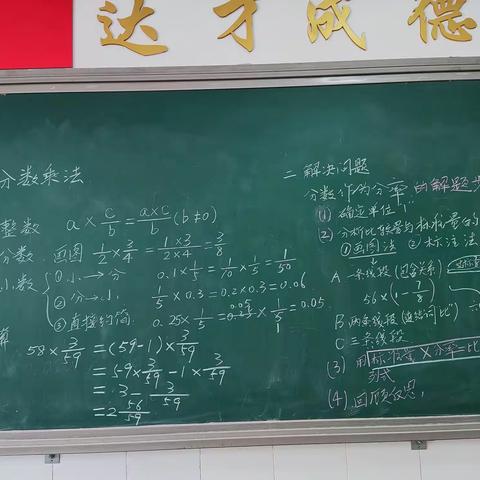 达才成德
分数乘法
整数 a×c/b=a×c/b(b≠0)
分数 画图 1/2×3/4=1×3/2×4=3/8
小数 ①小→分 0.1×1/5=1/10×1/5=1/50
②分→小 1/5×0.3=0.2×0.3=0.06
③直接约简 0.25×1/5=0.25×1/5=0.05
算 58×3/59=(59-1)×3/59
=59×3/59-1×3/59
=3-3/59
=2 56/59
二 解决问题
分数作为分率的解题步
(1) 确定单位"1"
(2) 分析比较量与标准量的
①画图法 ②标注法
A 一条线段(包含关系)
56×(1-7/8)
B 两条线段
C 三条线段
(3) 用标准量×分率=比
列式
(4) 回顾反思